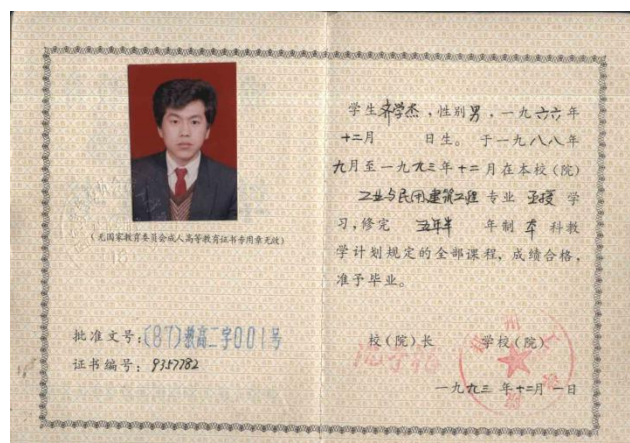 (无国家教育委员会成人高等教育证书专用章无效)
批准文号:(87)教高二字001号
证书编号:9357782
学生齐学杰,性别男,一九六六年
十二月 日生。于一九八八年
九月至一九九三年十二月在本校(院)
工业与民用建筑工程 专业 函授 学
习,修完 五年半 年制 本 科教
学计划规定的全部课程,成绩合格,
准予毕业。
校(院)长 学校(院)
一九九三年十二月一日